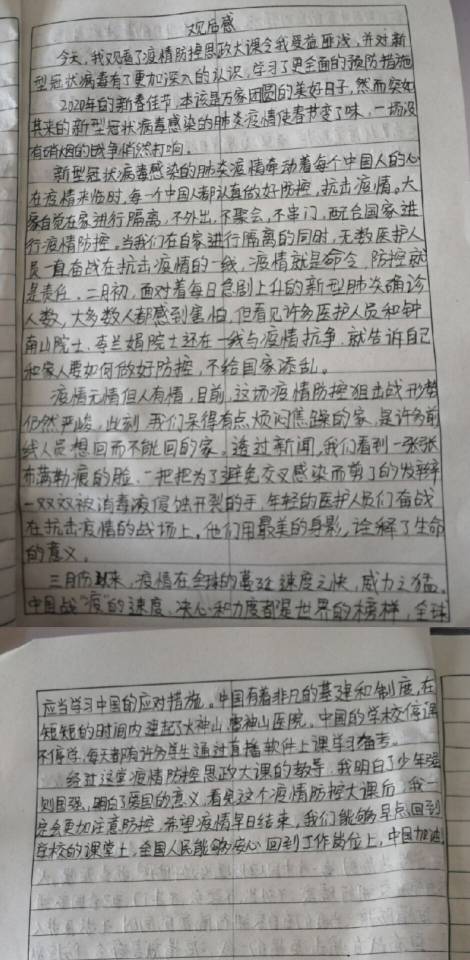 观后感
今天,我观看了疫情防控思政大课令我受益匪浅,并对新
型冠状病毒有了更加深入的认识,学习了更全面的预防措施
2020年的新春佳节,本该是万家团圆的美好日子,然而突如
其来的新型冠状病毒感染的肺炎疫情使春节变了味,一场没
有硝烟的战争悄然打响。
新型冠状病毒感染的肺炎疫情牵动着每个中国人的心
在疫情来临时,每一个中国人都认真做好防控,抗击疫情。大
家自觉在家进行隔离,不外出,不聚会,不串门,配合国家进
行疫情防控。当我们在自家进行隔离的同时,无数医护人
员一直奋战在抗击疫情的一线,疫情就是命令,防控就
是责任。二月初,面对着每日急剧上升的新型肺炎确诊
人数,大多数人都感到害怕,但看见许多医护人员和钟
南山院士、李兰娟院士还在一线与疫情抗争,就告诉自己
和家人要如何做好防控,不给国家添乱。
疫情无情但人有情,目前,这场疫情防控狙击战形势
仍然严峻,此刻,我们呆得有点烦闷焦躁的家,是许多前
线人员想回而不能回的家。透过新闻,我们看到一张张
布满勒痕的脸,一把把为了避免交叉感染而剪了的发辫
一双双被消毒液侵蚀开裂的手,年轻的医护人员们奋战
在抗击疫情的战场上。他们用最美的身影,诠释了生命
的意义。
三月份以来,疫情在全球的蔓延速度之快,威力之猛。
中国战“疫”的速度、决心和力度都是世界的榜样,全球
应当学习中国的应对措施。中国有着非凡的基建和制度,在
短短的时间内建起了火神山、雷神山医院。中国的学校停课
不停学,每天都有许多学生通过直播软件上课学习备考。
经过这堂疫情防控思政大课的教导,我明白了少年强
则国强,明白了爱国的意义,看完这个疫情防控大课后,我一
定会更加注意防控,希望疫情早日结束,我们能够早点回到
学校的课堂上,全国人民能够安心回到工作岗位上,中国加油